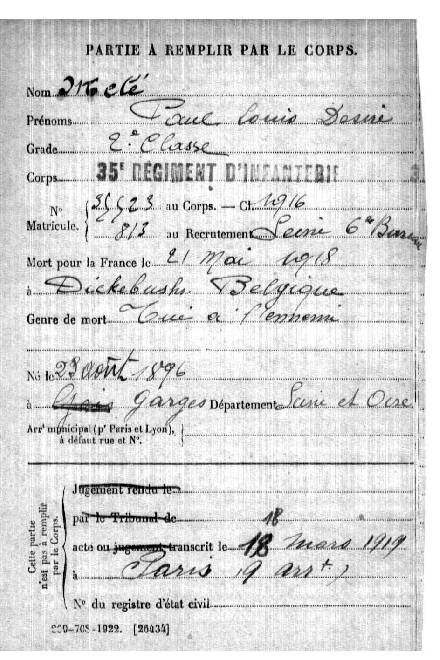 PARTIE À REMPLIR PAR LE CORPS.
Nom Melé
Prénoms Paul Louis Desiré
Grade 2e Classe
Corps 35e RÉGIMENT D'INFANTERIE
N° Matricule. au Corps. — Cl. 1916
813 au Recrutement Seine 6e Bureau
Mort pour la France le 21 Mai 1918
à Dickebush Belgique
Genre de mort Tué à l'ennemi
Né le 23 août 1896
à Garges Département Seine et Oise
Arrt municipal (pr Paris et Lyon), à défaut rue et N°.
Cette partie n'est pas à remplir par le Corps.
Jugement rendu le
par le Tribunal de
18
acte ou jugement transcrit le 18 mars 1919
à Paris (9 arrt)
N° du registre d'état civil
-708-1922. [26434]